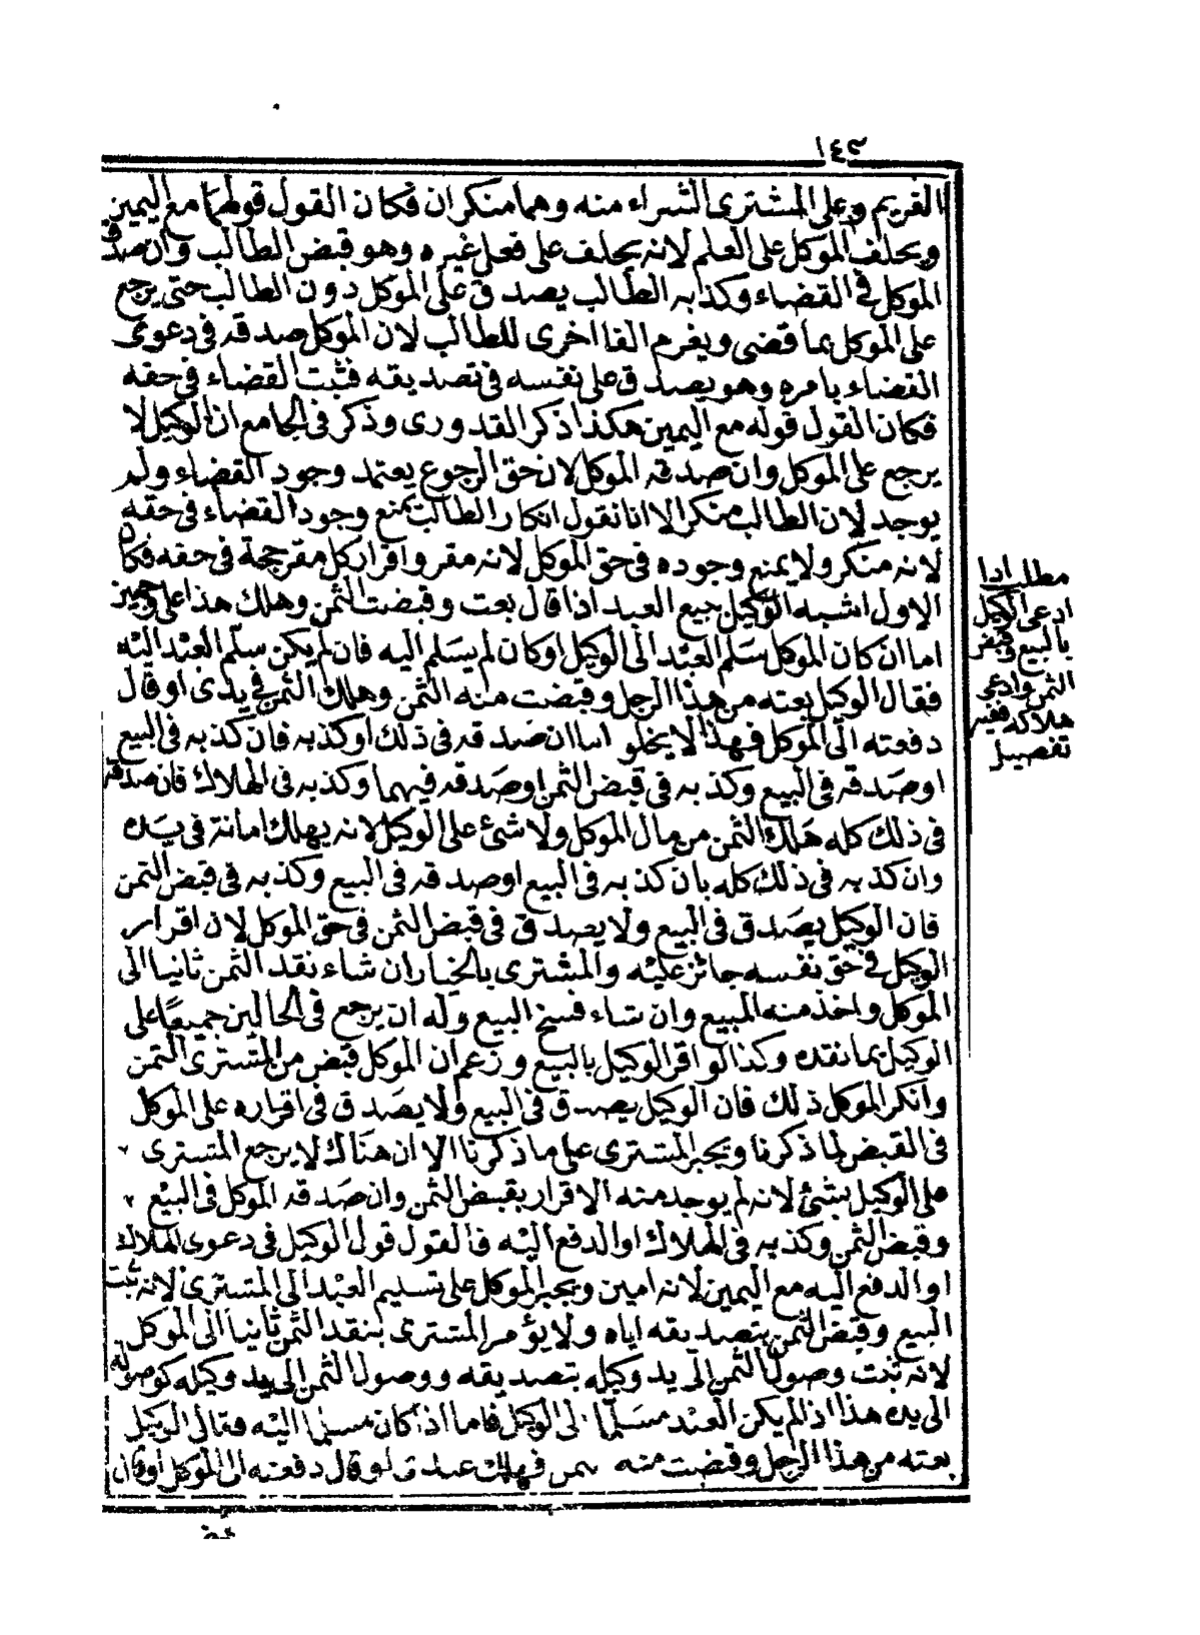 ١٤٣
الغريم وعلى المشترى الشراء منه وهما منكران فكان القول قولهما مع اليمين
ويحلف الموكل على العلم لانه يحلف على فعل غيره وهو قبض الطالب وان صدقه
الموكل فى القضاء وكذبه الطالب يصدق على الموكل دون الطالب حتى يرجع
على الموكل بما قضى ويغرم الفا اخرى للطالب لان الموكل صدقه فى دعوى
القضاء بامره وهو يصدق على نفسه فى تصديقه فثبت القضاء فى حقه
فكان القول قوله مع اليمين هكذا ذكر القدورى وذكر فى الجامع ان الوكيل لا
يرجع على الموكل وان صدقه الموكل لان حق الرجوع يعتمد وجود القضاء ولم
يوجد لان الطالب منكر الا انا نقول انكار الطالب يمنع وجود القضاء فى حقه
لانه منكر ولا يمنع وجوده فى حق الموكل لانه مقر واقرار كل مقر حجة فى حقه فكان
الاول اشبه الوكيل ببيع العبد اذا قال بعت وقبضت الثمن وهلك هذا على وجهين
اما ان كان الموكل سلم العبد الى الوكيل او كان لم يسلم اليه فان لم يكن سلم العبد اليه
فقال الوكيل بعته من هذا الرجل وقبضت منه الثمن وهلك الثمن فى يدى او قال
دفعته الى الموكل فهذا لا يخلو اما ان صدقه فى ذلك او كذبه فان كذبه فى البيع
او صدقه فى البيع وكذبه فى قبض الثمن او صدقه فيهما وكذبه فى الهلاك فان صدقه
فى ذلك كله هلك الثمن من مال الموكل ولا شئ على الوكيل لانه يهلك امانة فى يده
وان كذبه فى ذلك كله بان كذبه فى البيع او صدقه فى البيع وكذبه فى قبض الثمن
فان الوكيل يصدق فى البيع ولا يصدق فى قبض الثمن فى حق الموكل لان اقرار
الوكيل فى حق نفسه جائز عليه والمشترى بالخيار ان شاء نقد الثمن ثانيا الى
الموكل واخذ منه المبيع وان شاء فسخ البيع وله ان يرجع فى الحالين جميعا على
الوكيل بما نقده وكذا لو اقر الوكيل بالبيع وزعم ان الموكل قبض من المشترى الثمن
وانكر الموكل ذلك فان الوكيل يصدق فى البيع ولا يصدق فى اقراره على الموكل
فى القبض لما ذكرنا ويجبر المشترى على ما ذكرنا الا ان هناك لا يرجع المشترى
على الوكيل بشئ لانه لم يوجد منه الاقرار بقبض الثمن وان صدقه الموكل فى البيع
وقبض الثمن وكذبه فى الهلاك او الدفع اليه فالقول قول الوكيل فى دعوى الهلاك
او الدفع اليه مع اليمين لانه امين ويجبر الموكل على تسليم العبد الى المشترى لانه ثبت
البيع وقبض الثمن بتصديقه اياه ولا يؤمر المشترى بنقد الثمن ثانيا الى الموكل
لانه ثبت وصول الثمن الى يد وكيله بتصديقه ووصول الثمن الى يد وكيله كوصوله
الى يده هذا اذا لم يكن العبد مسلما الى الوكيل فاما اذا كان مسلما اليه فقال الوكيل
بعته من هذا الرجل وقبضت منه فهلك عندى او قال دفعته الى الموكل او قال
مطلب اذا
ادعى الوكيل
بالبيع وقبض
الثمن وادعى
هلاكه ففيه
تفصيل